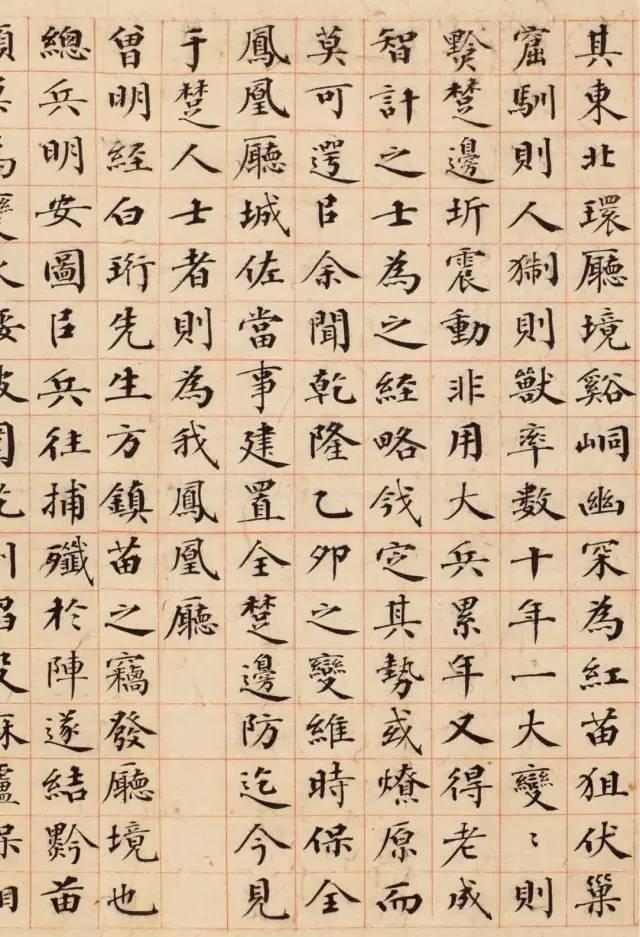 其東北環廳境谿峒幽罙為紅苗狙伏巢
窟馴則人猘則獸率數十年一大變〻則
黔楚邊圻震動非用大兵累年又得老成
智計之士為之經略戡定其勢或燎原而
莫可遌㠯余聞乾隆乙夘之變維時保全
鳳凰廳城佐當事建置全楚邊防迄今見
于楚人士者則為我鳳凰廳
曾明經白珩先生方鎮苗之竊發廳境也
總兵明安圖㠯兵往捕殲於陣遂結黔苗